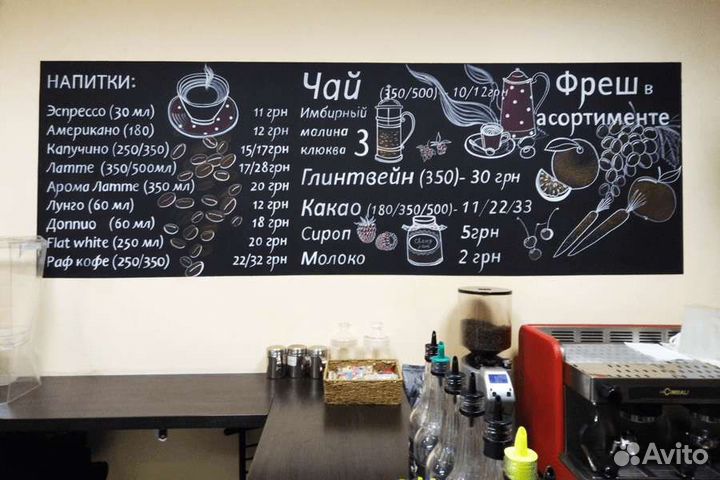 НАПИТКИ:
Эспрессо (30 мл) 11 грн
Американо (180) 12 грн
Капучино (250/350) 15/17грн
Латте (350/500мл) 17/28грн
Арома Латте (350 мл) 20 грн
Лунго (60 мл) 12 грн
Доппио (60 мл) 18 грн
Flat white (250 мл) 20 грн
Раф кофе (250/350) 22/32 грн
Чай (350/500) - 10/12грн
Имбирный
малина
клюква 3
Глинтвейн (350)- 30 грн
Какао (180/350/500)- 11/22/33
Сироп 5грн
Молоко 2 грн
Фреш в
асортименте
CIMBALI
Avito